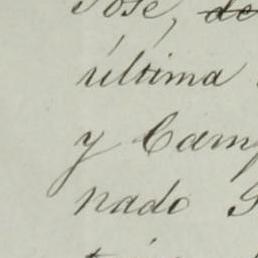 José, de
última
y Camp
nado